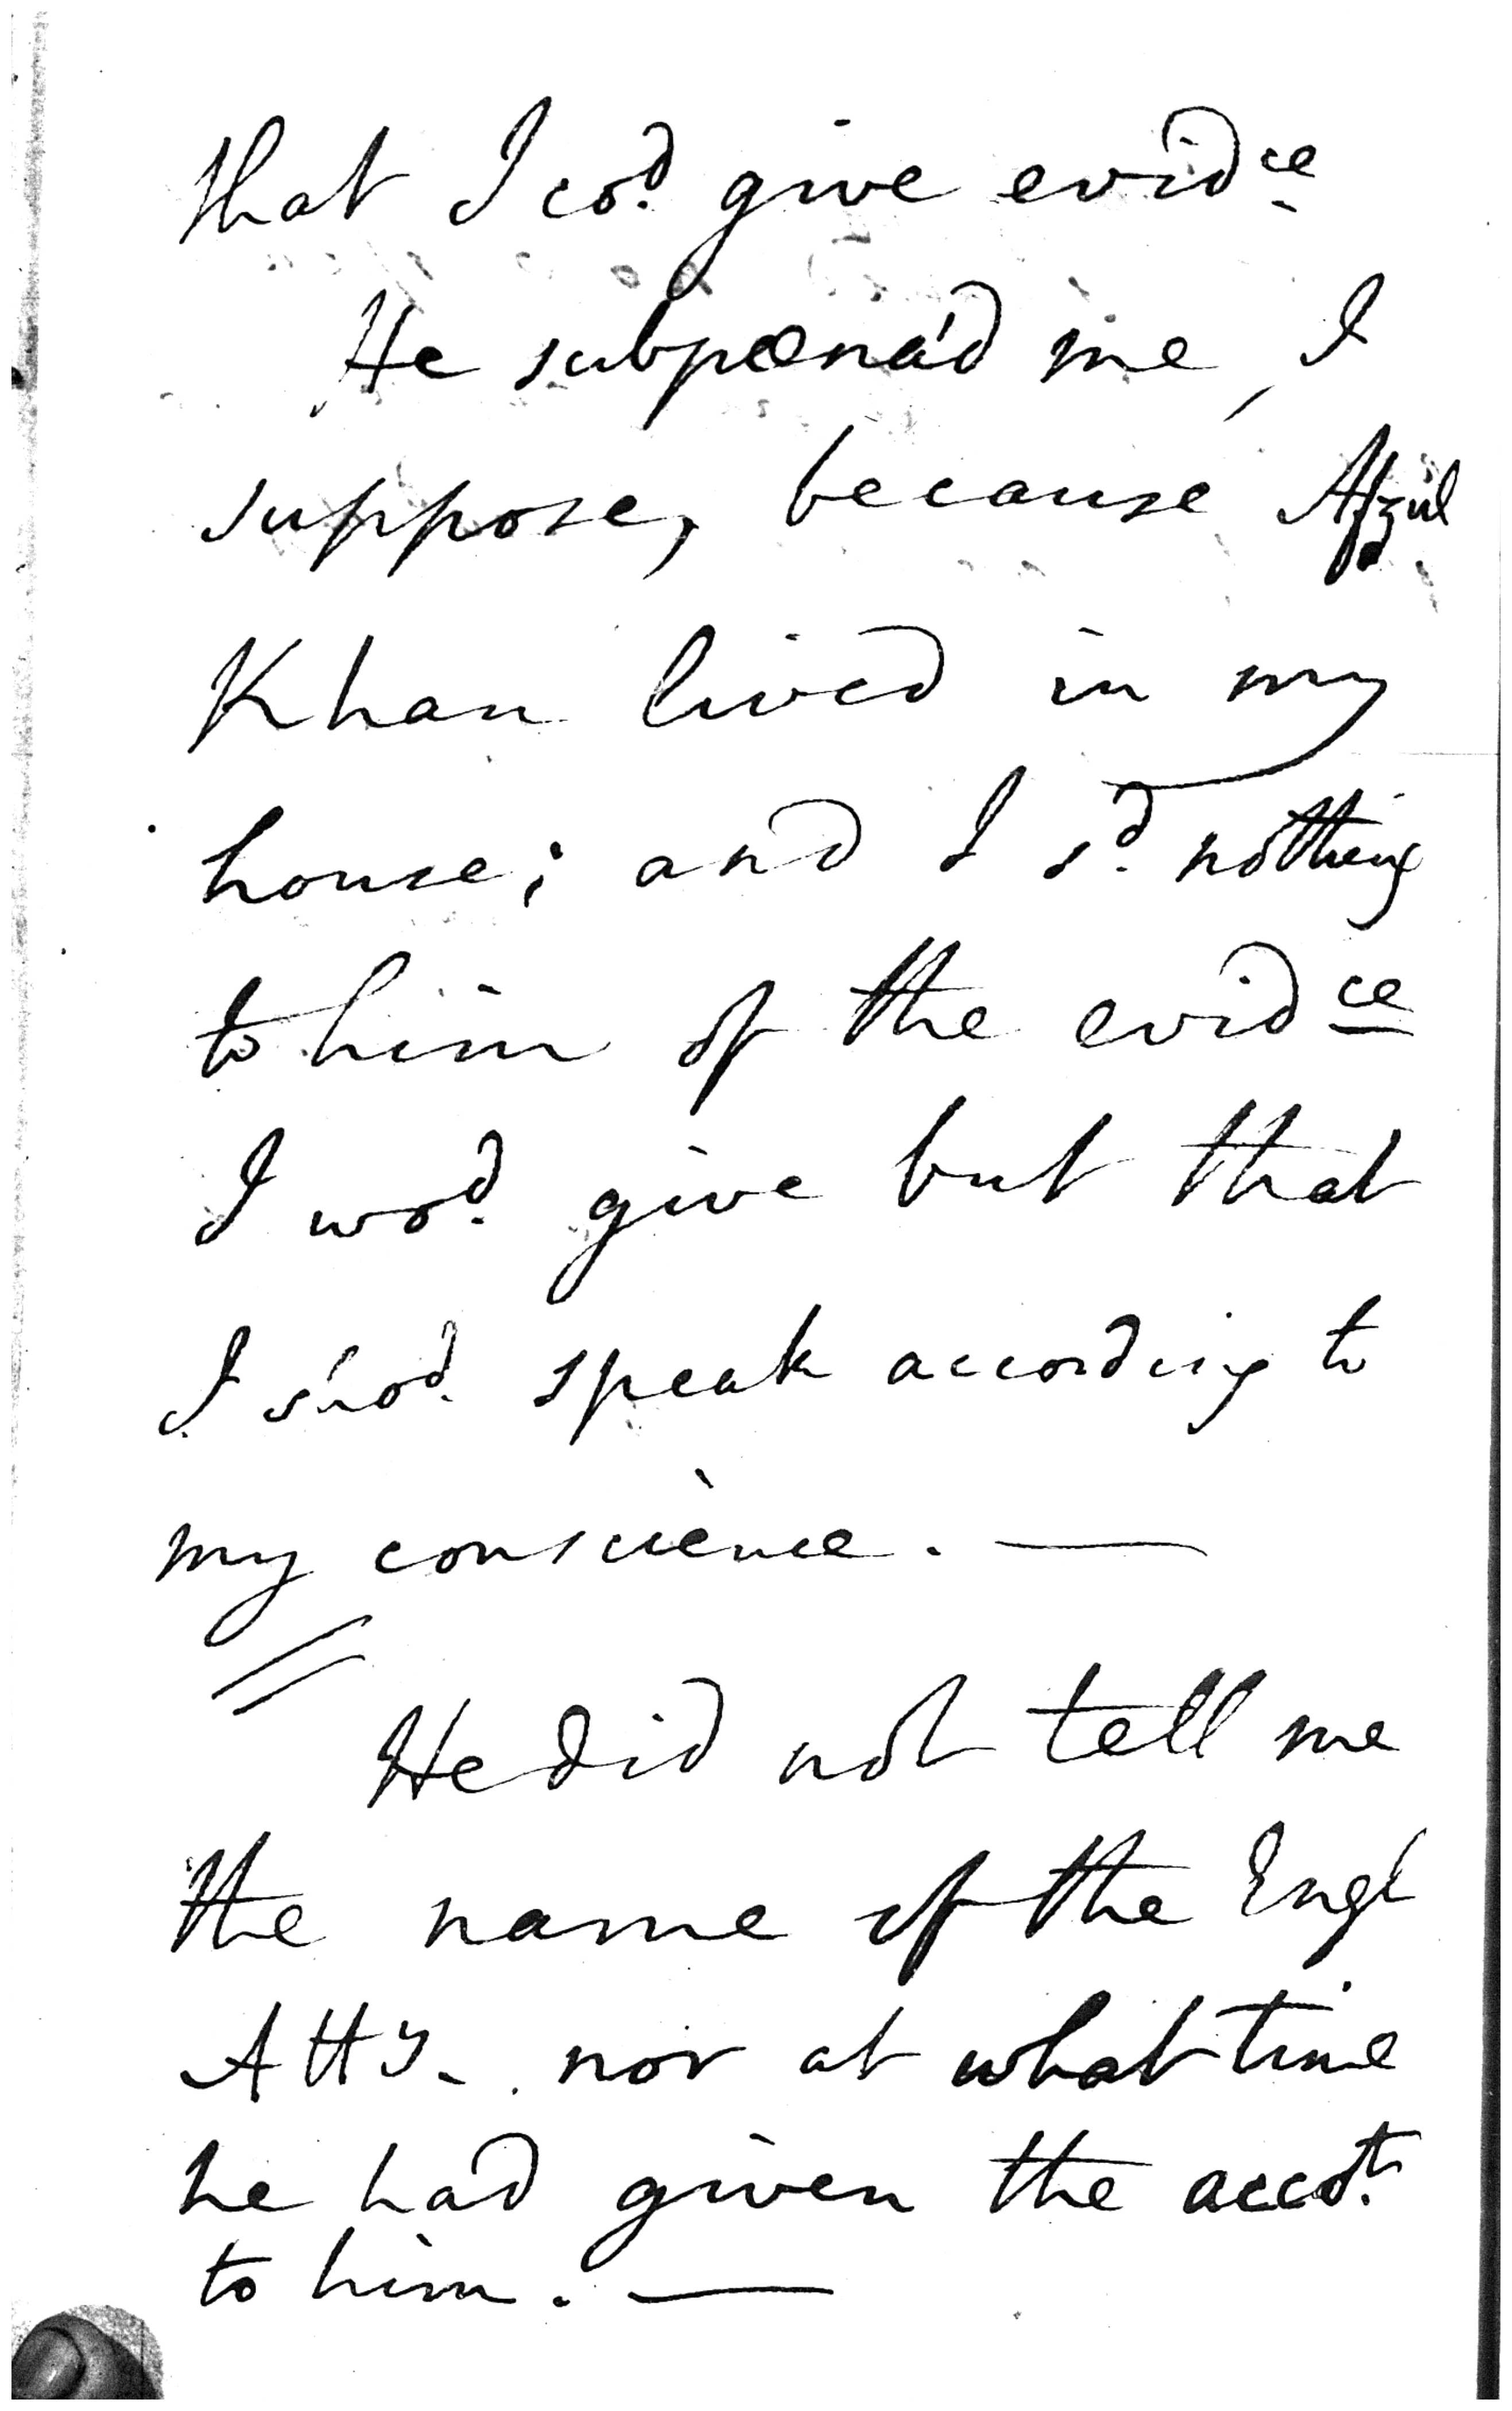 that I cod. give evidce
He subpœna'd me, I
suppose, because Afzul
Khan lived in my
house; and I sd. nothing
to him of the evidce
I wod. give but that
I shod. speak according to
my conscience. —
He did not tell me
the name of the Engl
Atty. nor at what time
he had given the accot.
to him. —